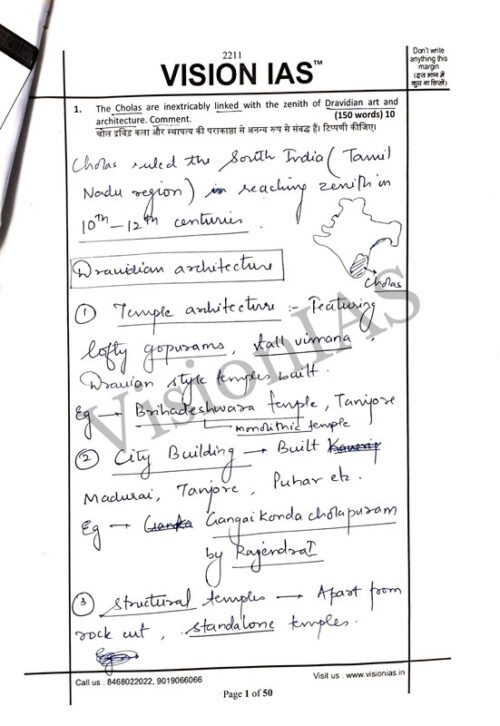 2211
VISION IAS™
Don't write
anything this
margin
(इस भाग में
कुछ ना लिखें)
1. The Cholas are inextricably linked with the zenith of Dravidian art and
architecture. Comment. (150 words) 10
चोल द्रविड़ कला और स्थापत्य की पराकाष्ठा से अनन्य रूप से संबद्ध हैं। टिप्पणी कीजिए।
Cholas ruled the South India (Tamil
Nadu region) in reaching zenith in
10th-12th centuries.
Cholas
Dravidian architecture
1 Temple architecture :- Featuring
lofty gopurams, tall vimana,
Dravian style temples built.
Eg → Brihadeshwara temple, Tanjore
monolithic temple
2 City Building → Built
Madurai, Tanjore, Puhar etc.
Eg → Gangaikonda cholapuram
by Rajendra I
3 Structural temples → Apart from
rock cut, standalone temples.
VisionIAS
Call us : 8468022022, 9019066066
Visit us : www.visionias.in
Page 1 of 50